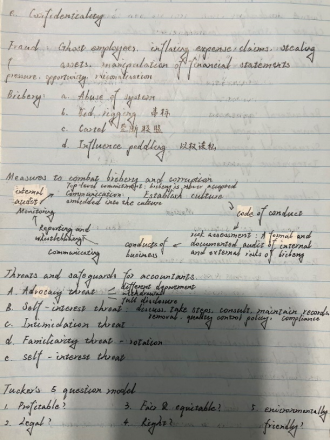 e. Confidentiality
Fraud: Ghost employees, inflating expense claims, stealing
assets, manipulation of financial statements
pressure, opportunity, rationalisation
Bribery: a. Abuse of system
b. Bid, rigging 串标
c. Cartel
d. Influence peddling 以权谋私
Measures to combat bribery and corruption
Top level commitment: bribery is never accepted
internal audits Communication: Establish culture
embedded into the culture
Monitoring
code of conduct
Reporting and whistleblowing
risk assessment: A formal and
conducts of documented audit of internal
communicating business and external risks of bribery
Threats and safeguards for accountants.
A. Advocacy threat different agreement
withdrawal
full disclosure
B. Self-interest threat: discuss, take steps, consult, maintain records
removal, quality control policy, compliance
c. Intimidation threat
d. Familiarity threat - rotation
e. self-interest threat
Tucker's 5 question model
1. Profitable? 3. Fair & equitable? 5. environmentally
2. Legal? 4. Right? friendly?